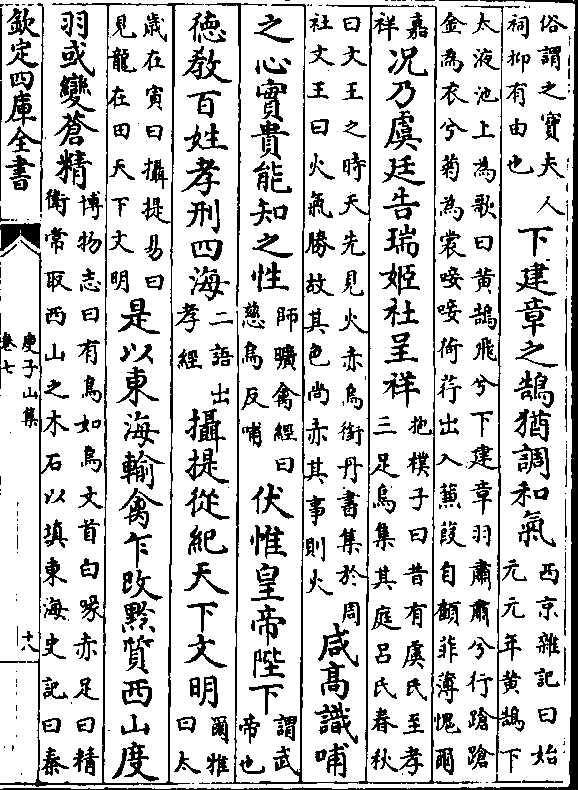 俗謂之寶夫人
祠抑有由也
下建章之鵠猶調和氣
西京雜記曰始
元元年黄鵠下
太液池上為歌曰黄鵠飛兮下建章羽肅肅兮行蹌蹌
金為衣兮菊為裳唼喋荷荇出入蒹葭自顧菲薄愧爾
嘉
祥
况乃虞廷告瑞姬社呈祥
抱樸子曰昔有虞氏至孝
三足烏集其庭吕氏春秋
曰文王之時天先見火赤烏銜丹書集於周
社文王曰火氣勝故其色尚赤其事則火
咸髙識哺
之心實貴能知之性
師曠禽經曰
慈烏反哺
伏惟皇帝陛下
謂武
帝也
徳教百姓孝刑四海
二語出
孝經
攝提從紀天下文明
爾雅
曰太
歳在寅曰攝提易曰
見龍在田天下文明
是以東海輸禽乍改黔質西山度
羽或變蒼精
博物志曰有鳥如烏文首白喙赤足曰精
衛常取西山之木石以填東海史記曰秦
欽定四庫全書
庾子山集
卷七
十八